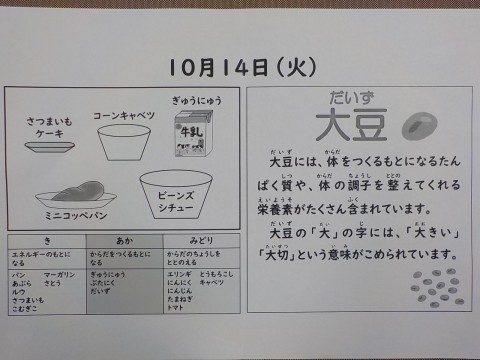 10月14日(火)
さつまいも
ケーキ
コーンキャベツ
ぎゅうにゅう
牛乳
ミニコッペパン
ビーンズ
シチュー
き
エネルギーのもとに
なる
パン マーガリン
あぶら さとう
ルウ
さつまいも
こむぎこ
あか
からだをつくるもとに
なる
ぎゅうにゅう
ぶたにく
だいず
みどり
からだのちょうしを
ととのえる
エリンギ とうもろこし
にんにく キャベツ
にんじん
たまねぎ
トマト
だいず
大豆
だいず からだ
大豆には、体をつくるもとになるたん
しつ からだ ちょうし ととの
ぱく質や、体の調子を整えてくれる
えいようそ ふく
栄養素がたくさん含まれています。
だいず
大豆の「大」の字には、「大きい」
たいせつ いみ
「大切」という意味がこめられています。